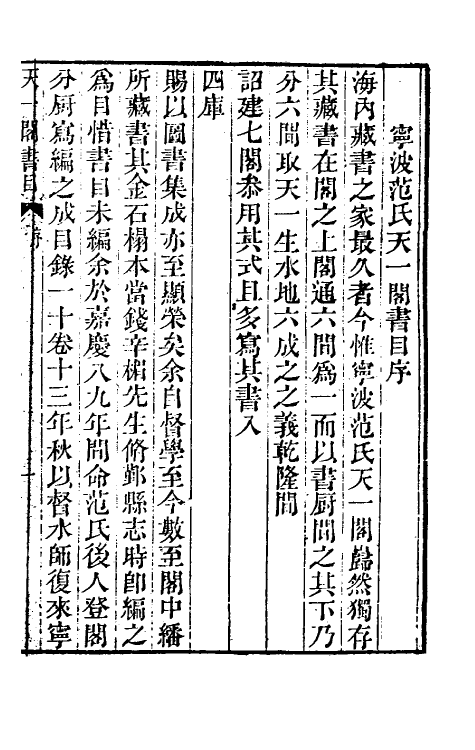 寧波范氏天一閣書目序
海內藏書之家最久者今惟寧波范氏天一閣巋然獨存
其藏書在閣之上閣通六間爲一而以書厨間之其下乃
分六間取天一生水地六成之之義乾隆間
詔建七閣叅用其式且多寫其書入
四庫
賜以圖書集成亦至顯榮矣余自督學至今數至閣中繙
所藏書其金石榻本當錢辛楣先生脩鄞縣志時卽編之
爲目惜書目未編余於嘉慶八九年間命范氏後人登閣
分厨寫編之成目錄一十卷十三年秋以督水師復來寧
天一閣書目 序